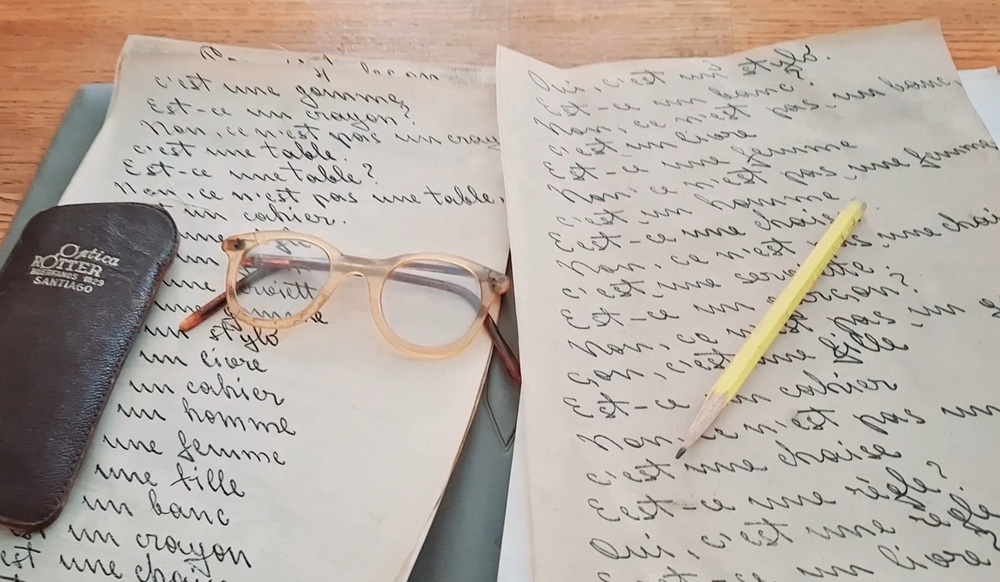 c'est une gomme
Est-ce un crayon?
Non, ce n'est pas un cray
c'est une table.
Est-ce une table?
Non ce n'est pas une table.
st un cahier.
une
une
une
un stylo
un livre
un cahier
un homme
une femme
une fille
un banc
st un crayon
est une chaise
Optica
ROTTER
HUERFANOS 1029
SANTIAGO
Oui, c'est un stylo.
Est-ce un banc?
Non, ce n'est pas un banc
C'est un livre
Est-ce une femme
Non, ce n'est pas une femme
C'est un homme
Est-ce une chaise
Non, ce n'est pas une chais
C'est une serviette
Est-ce un garçon?
Non, ce n'est pas un g
C'est une fille
Est-ce un cahier
Non, ce n'est pas un
C'est une chaise
Est-ce une règle?
Oui, c'est une règle
Est-ce un livre?